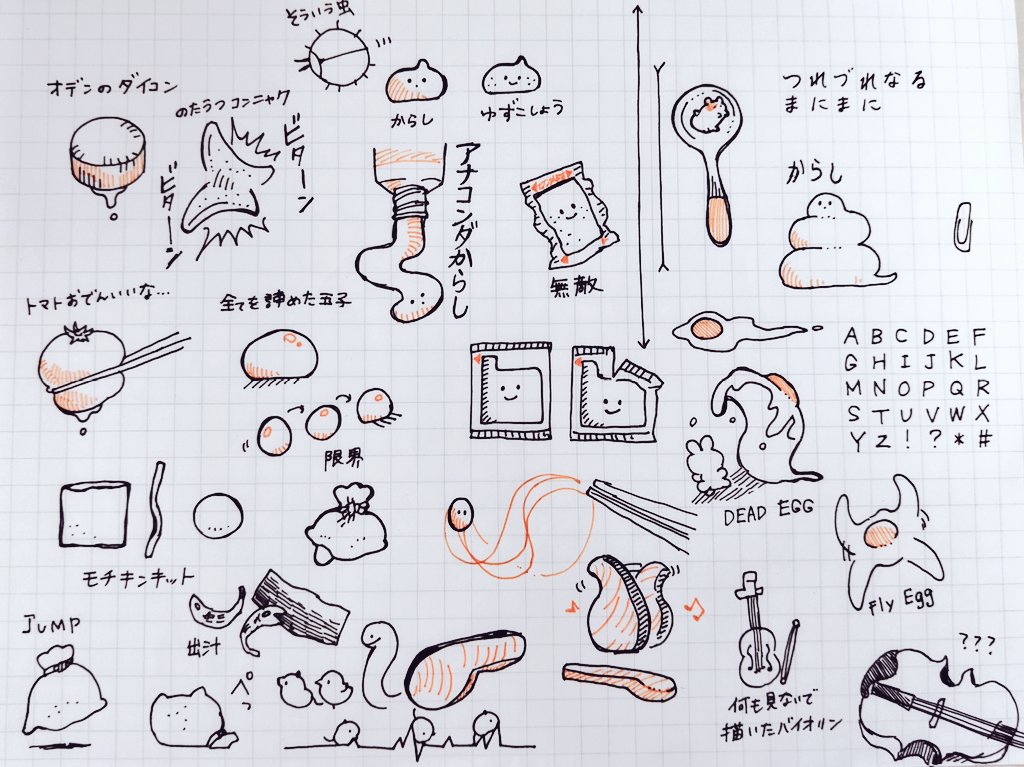 そういう虫
オデンのダイコン
のたうつコンニャク
ビターン
ビターン
からし
ゆずこしょう
アナコンダからし
無敵
つれづれなる
まにまに
からし
トマトおでんいいな…
全てを諦めた玉子
限界
A B C D E F
G H I J K L
M N O P Q R
S T U V W X
Y Z ! ? * #
DEAD EGG
Fly Egg
モチキンキット
出汁
JUMP
ぺっ
何も見ないで
描いたバイオリン
???